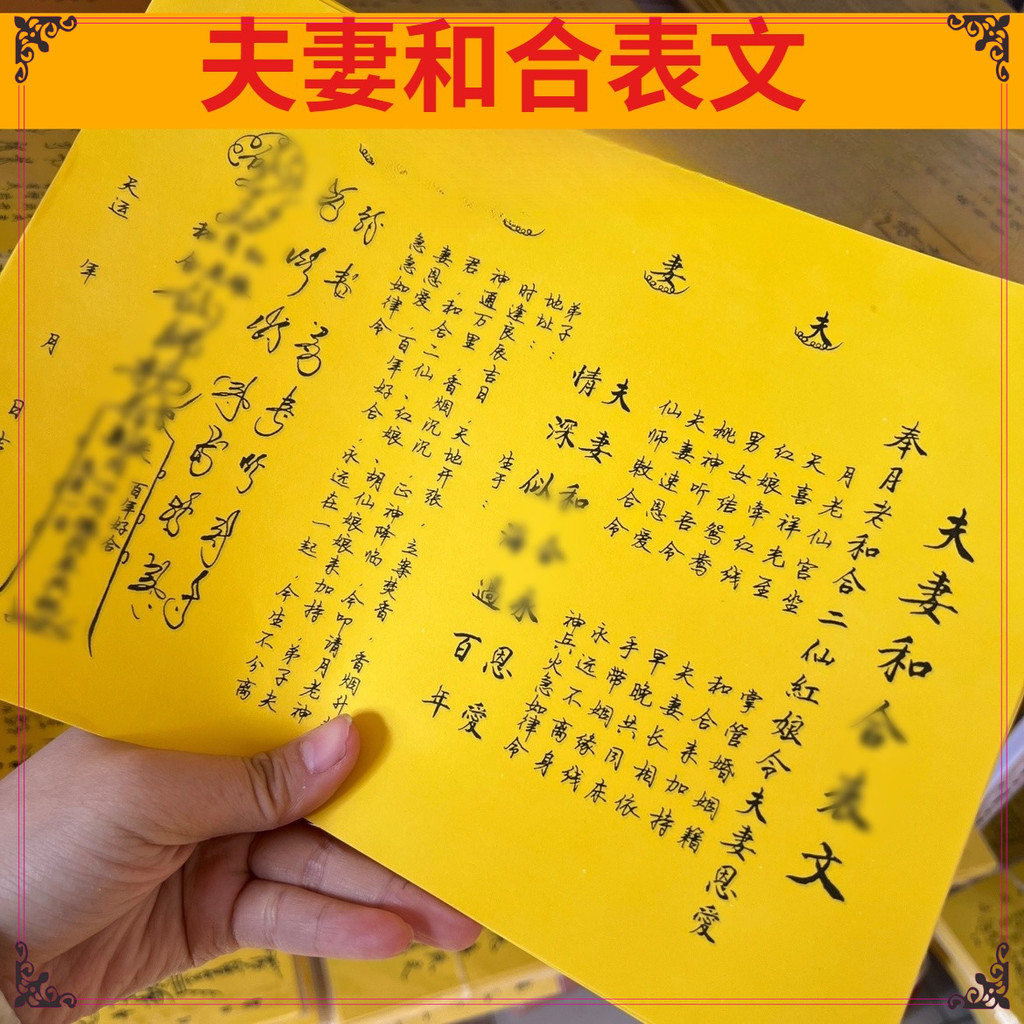 夫妻和合表文
夫妻和合表文
奉月老和合二仙紅娘令夫妻恩愛
月老仙官坐 掌管婚烟籍
天喜祥光至 和合来加持
红娘牵红线 夫妻长相依
男女结鸳鸯 早晚共同床
桃神听吾令 手带烟缘线
夫妻速恩爱 永远不离身
仙师敕合令 神兵火急如律令
夫
妻
夫妻和合永恩愛
情深似海過百年
弟子： 生于：
地址：
时逢良辰吉日，天地开张，立案焚香，香烟升
神通万里，香烟沉沉，正神降临，今叩请月老神
君，和合二仙、红娘、胡仙娘娘来加持，弟子夫
妻恩爱，百年好合，永远在一起，今生不分离
急急如律令
百年好合
天运 年 月 日